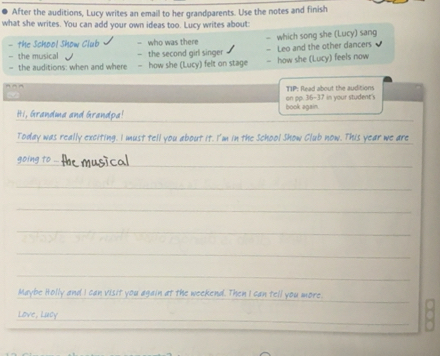 After the auditions, Lucy writes an email to her grandparents. Use the notes and finish
what she writes. You can add your own ideas too. Lucy writes about:
– the School Show Club
– the musical
– the auditions: when and where
– who was there
– the second girl singer
– how she (Lucy) felt on stage
– which song she (Lucy) sang
– Leo and the other dancers
– how she (Lucy) feels now
TIP: Read about the auditions
on pp. 36–37 in your student's
book again.
Hi, Grandma and Grandpa!
Today was really exciting. I must tell you about it. I'm in the School Show Club now. This year we are
going to the musical
Maybe Holly and I can visit you again at the weekend. Then I can tell you more.
Love, Lucy